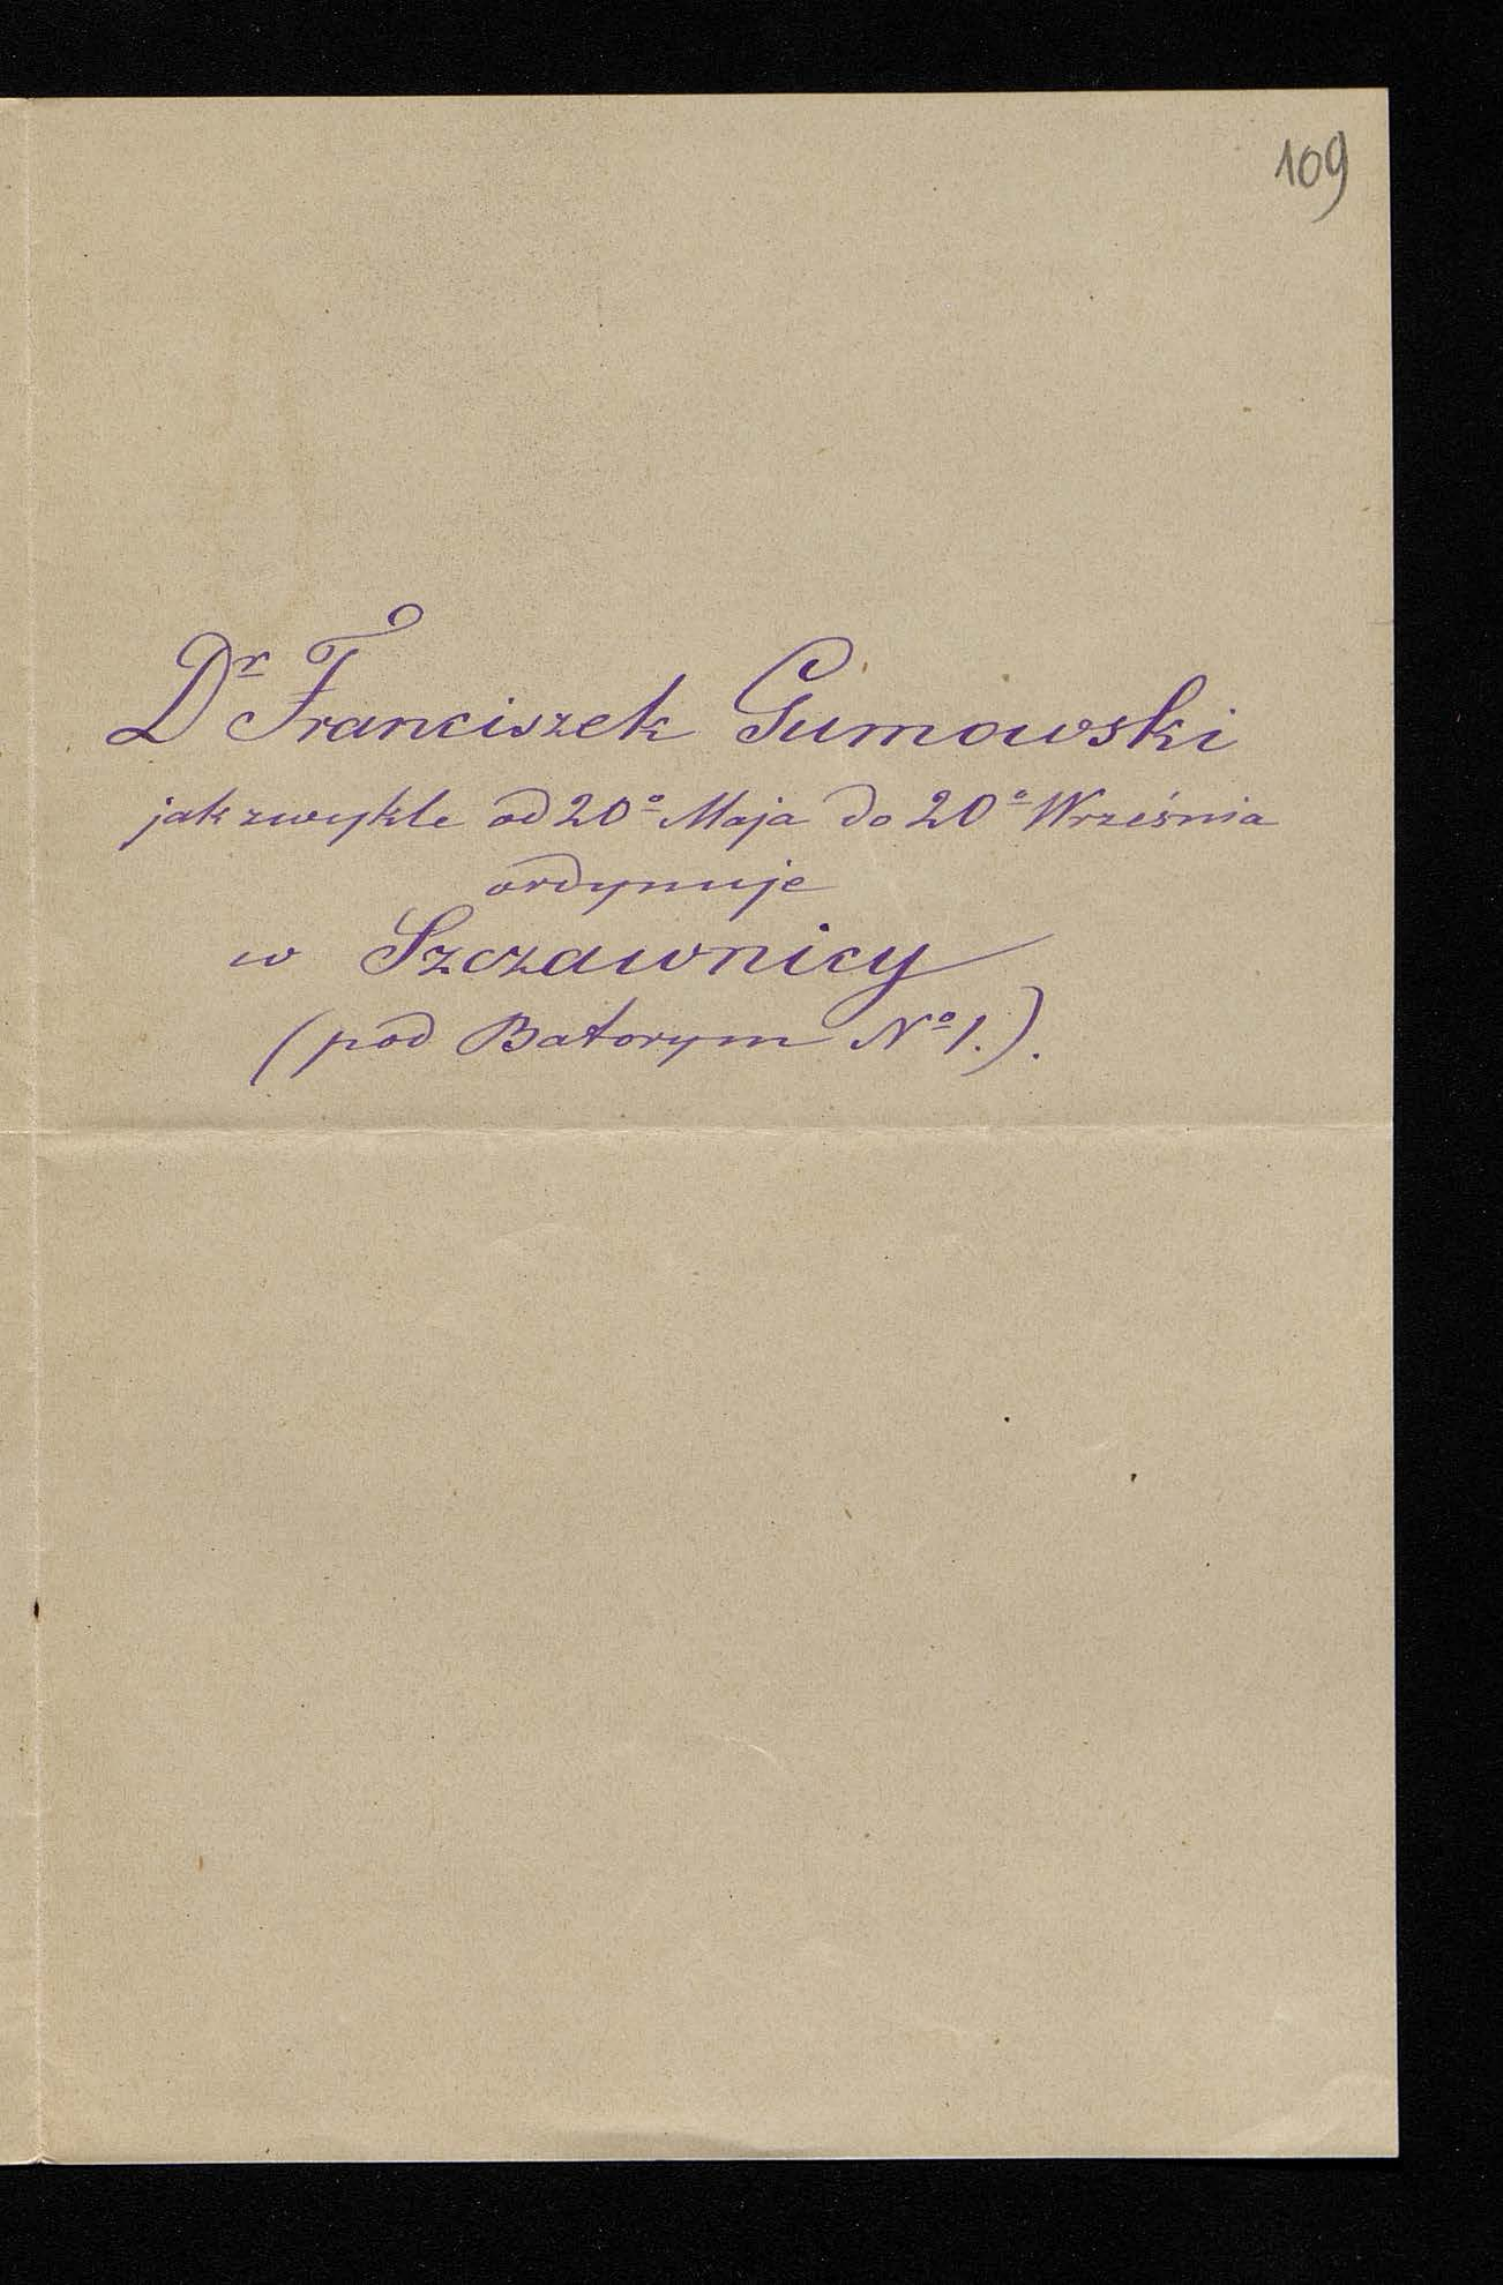 109
Dr Franciszek Gumowski
jak zwykle od 20º Maja do 20º Września
ordynuje
w Szczawnicy
(pod Batorym Nº 1.).